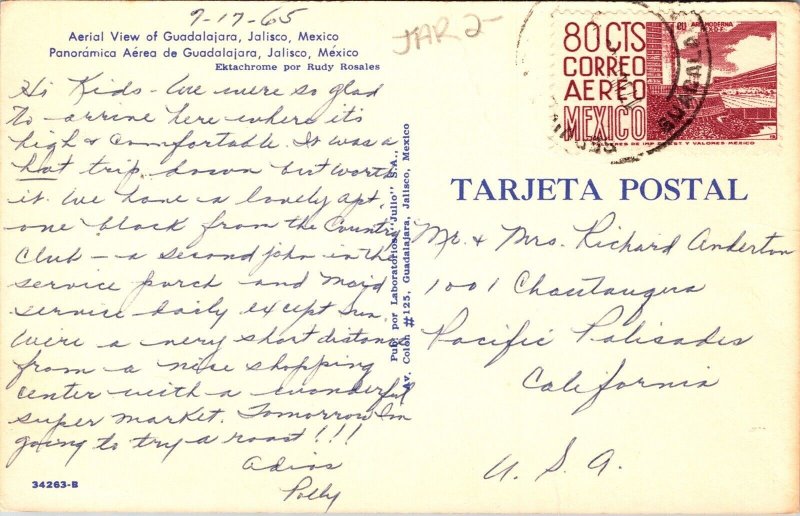 9-17-65
JAR 2-
Aerial View of Guadalajara, Jalisco, Mexico
Panorámica Aérea de Guadalajara, Jalisco, México
Ektachrome por Rudy Rosales
Hi Kids - We were so glad
to arrive here where it's
high & comfortable. It was a
hot trip down but worth
it. We have a lovely apt.
one block from the Country
Club - a second john in the
service porch and maid
service daily except Sun.
We're a very short distance
from a nice shopping
center with a wonderful
super market. Tomorrow I'm
going to try a roast!!!
Adios
Polly
34263-B
Pub. por Laboratorios "Julio" S.A.,
Av. Colón #125, Guadalajara, Jalisco, Mexico
80 CTS
CORREO
AEREO
MEXICO
ARQ. MODERNA
MEX. D.F.
VALORES MEXICO
TARJETA POSTAL
Mr. & Mrs. Richard Anderton
1001 Chautauqua
Pacific Palisades
California
U.S.A.